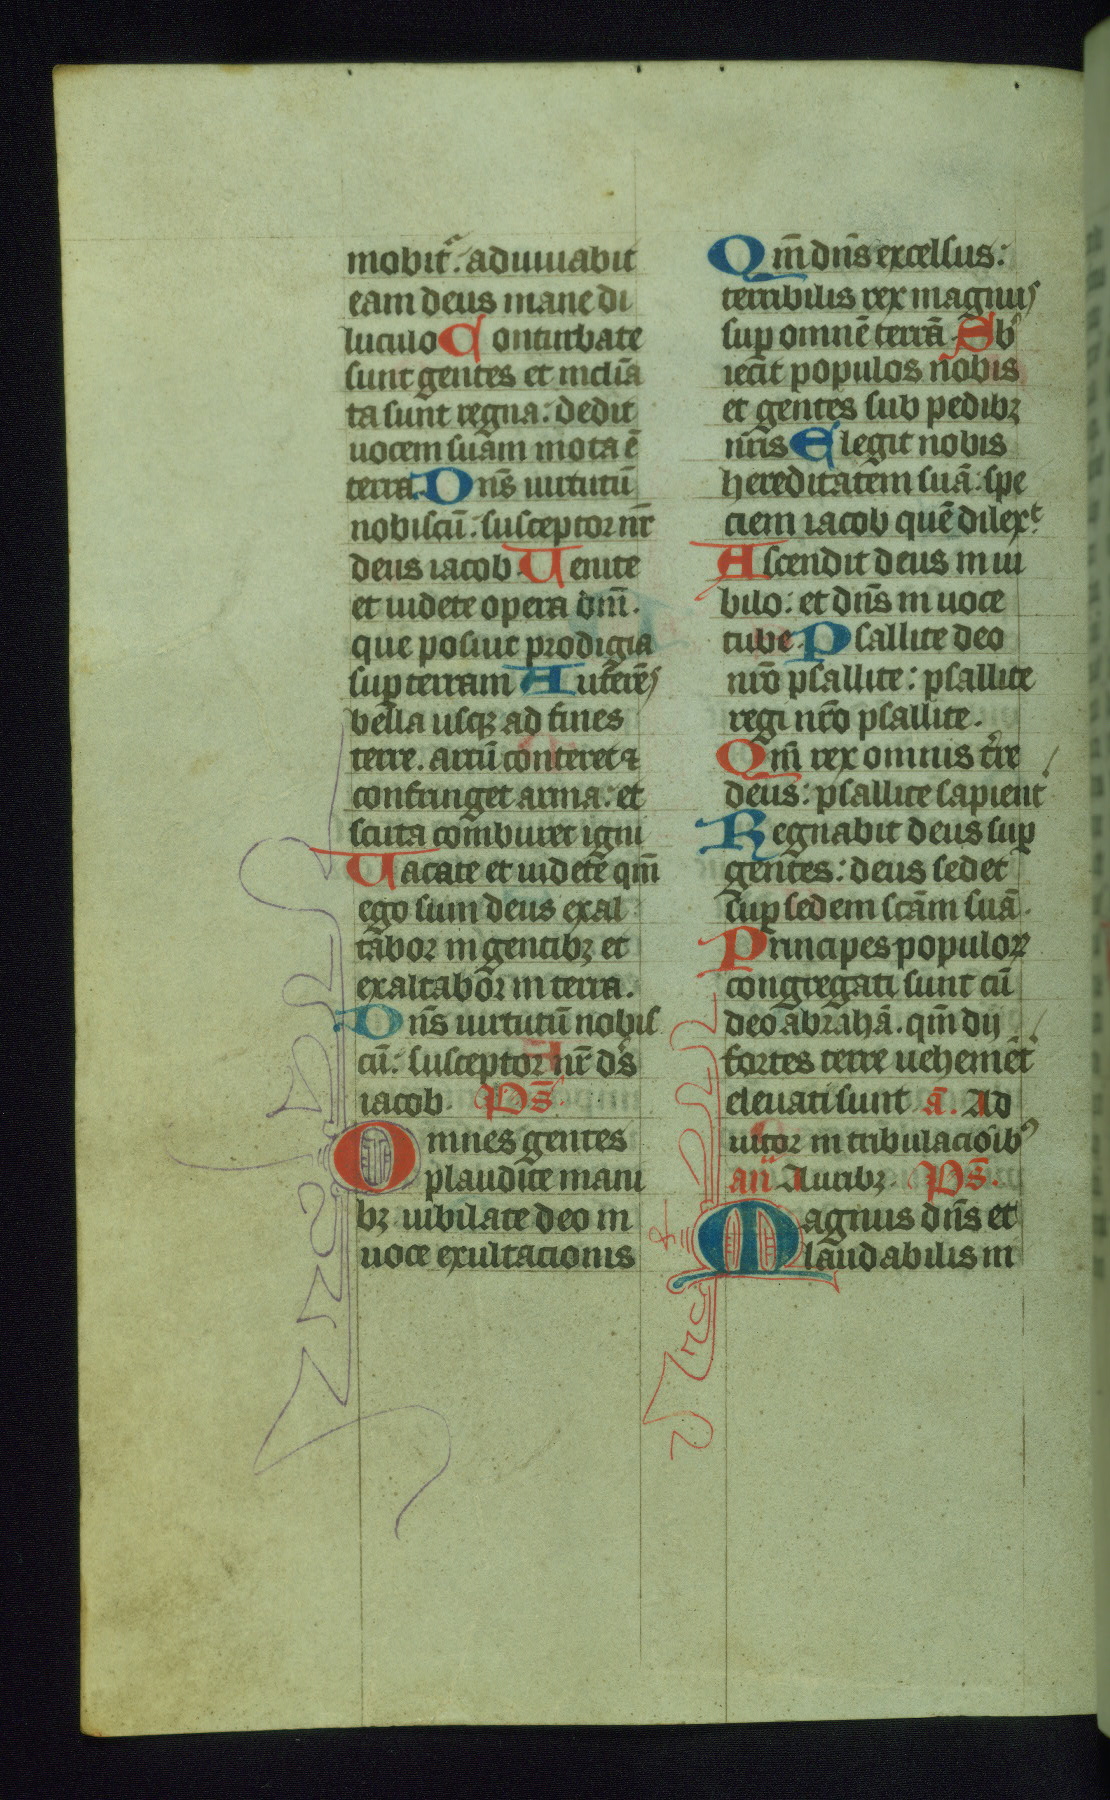 mobit᷑. adiuuabit
eam deus mane di
luculo Conturbate
sunt gentes et inclīa
ta sunt regna: dedit
uocem suam mota ē
terra. Dn̄s uirtutū
nobiscū: susceptor nr̄
deus iacob. Uenite
et uidete opera dn̄i.
que posuit prodigia
sup terram Auferēs
bella usqꝫ ad fines
terre. arcū conteret ⁊
confringet arma: et
scuta comburet igni
Uacate et uidete qm̄
ego sum deus exal
tabor in gentibꝫ et
exaltabor in terra.
Dn̄s uirtutū nobis
cū: susceptor nr̄ ds̄
iacob. Ps̄.
Omnes gentes
plaudite mani
bꝫ iubilate deo in
uoce exultacionis
Qm̄ dn̄s excelsus:
terribilis rex magnus
suꝑ omnē terrā. Sb᷒
iecit populos nobis
et gentes sub pedibꝫ
nr̄is Elegit nobis
hereditatem suā: spe
ciem iacob quē dilexͭ
Ascendit deus in iu
bilo: et dn̄s in uoce
tube. Psallite deo
nr̄o psallite: psallite
regi nr̄o psallite.
Qm̄ rex omnis tr̄re
deus: psallite sapient᷑
Regnabit deus suꝑ
gentes: deus sedet
suꝑ sedem scām suā.
Principes populoꝝ
congregati sunt cū
deo abrahā. qm̄ dij
fortes terre uehemēt᷑
eleuati sunt ā. Ad
iutor in tribulacōibꝰ
an̄ Auribꝫ. Ps̄.
Magnus dn̄s et
laudabilis in